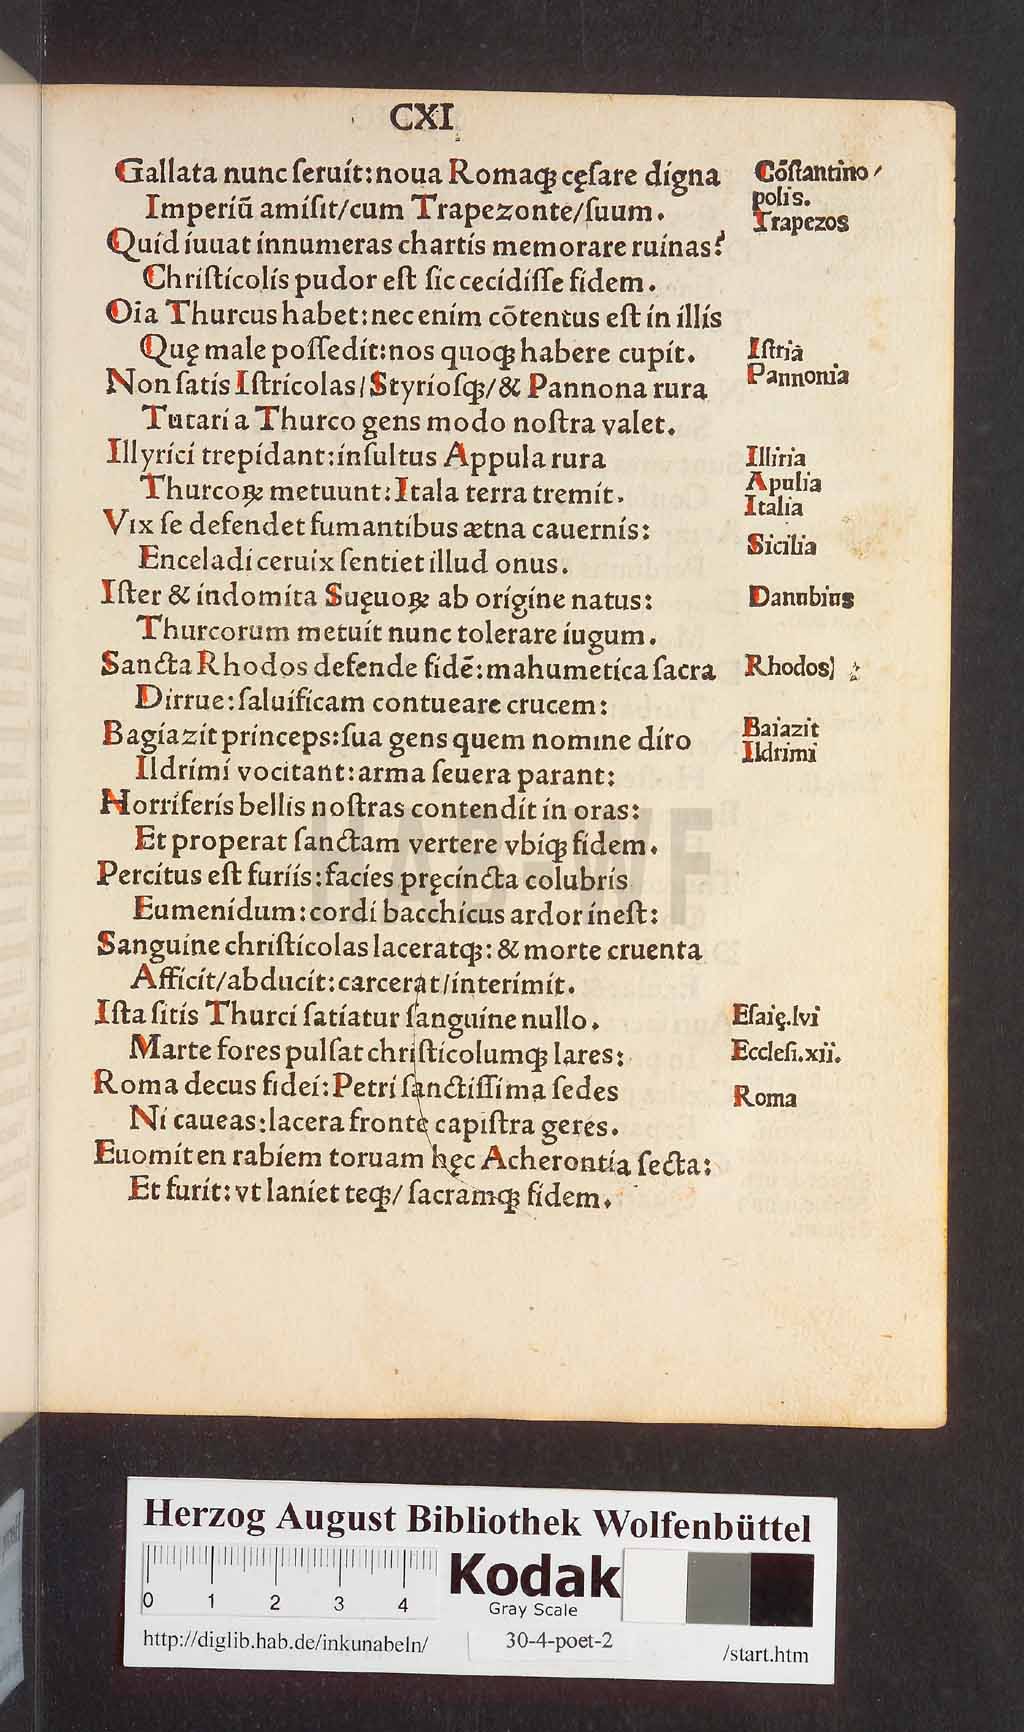 CXI
Gallata nunc ſeruit: noua Romaqꝫ cęſare digna
Imperiū amiſit/cum Trapezonte/ſuum.
Quid iuuat innumeras chartis memorare ruinas?
Chriſticolis pudor eſt ſic cecidiſſe fidem.
Oia Thurcus habet: nec enim cōtentus eſt in illis
Quę male poſſedit: nos quoqꝫ habere cupit.
Non ſatis Iſtricolas/Styrioſqꝫ/& Pannona rura
Tutari a Thurco gens modo noſtra valet.
Illyrici trepidant: inſultus Appula rura
Thurcoꝝ metuunt: Itala terra tremit.
Vix ſe defendet fumantibus ætna cauernis:
Enceladi ceruix ſentiet illud onus.
Iſter & indomita Suęuoꝝ ab origine natus:
Thurcorum metuit nunc tolerare iugum.
Sancta Rhodos defende fidē: mahumetica ſacra
Dirrue: ſaluificam contueare crucem:
Bagiazit princeps: ſua gens quem nomine diro
Ildrimi vocitant: arma ſeuera parant:
Horriferis bellis noſtras contendit in oras:
Et properat ſanctam vertere vbiqꝫ fidem.
Percitus eſt furiis: facies pręcincta colubris
Eumenidum: cordi bacchicus ardor ineſt:
Sanguine chriſticolas laceratqꝫ: & morte cruenta
Afficit/abducit: carcerat/interimit.
Iſta ſitis Thurci ſatiatur ſanguine nullo.
Marte fores pulſat chriſticolumqꝫ lares:
Roma decus fidei: Petri ſanctiſſima ſedes
Ni caueas: lacera fronte capiſtra geres.
Euomit en rabiem toruam hęc Acherontia ſecta:
Et furit: vt laniet teqꝫ/ſacramqꝫ fidem.
Cōſtantino/
polis.
Trapezos
Iſtria
Pannonia
Illiria
Apulia
Italia
Sicilia
Danubius
Rhodos
Baiazit
Ildrimi
Eſaię.lvi
Eccleſi.xii.
Roma
HAB-WF
Herzog August Bibliothek Wolfenbüttel
0 1 2 3 4
Kodak
Gray Scale
http://diglib.hab.de/inkunabeln/
30-4-poet-2
/start.htm